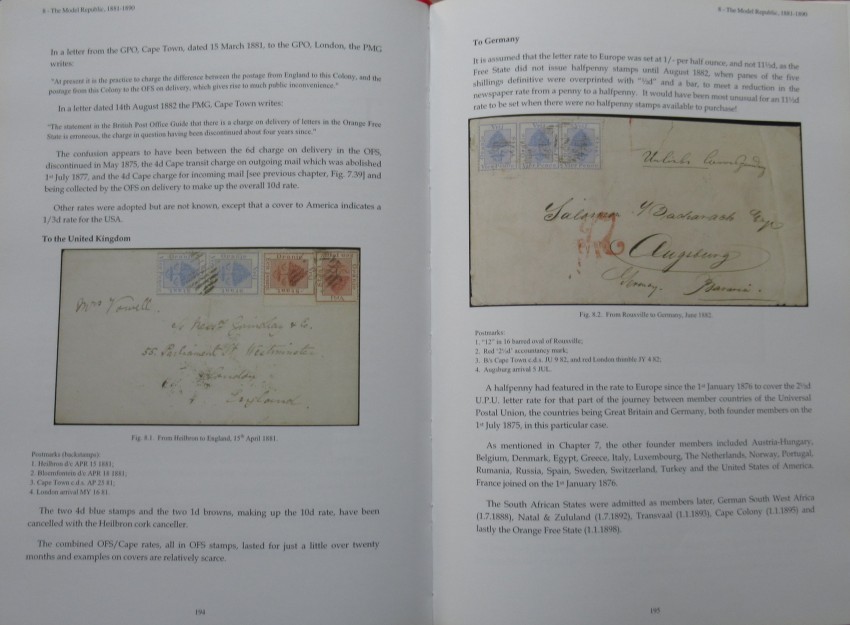 8 - The Model Republic, 1881-1890
In a letter from the GPO, Cape Town, dated 15 March 1881, to the GPO, London, the PMG
writes:
"At present it is the practice to charge the difference between the postage from England to this Colony, and the
postage from this Colony to the OFS on delivery, which gives rise to much public inconvenience."
In a letter dated 14th August 1882 the PMG, Cape Town writes:
"The statement in the British Post Office Guide that there is a charge on delivery of letters in the Orange Free
State is erroneous, the charge in question having been discontinued about four years since."
The confusion appears to have been between the 6d charge on delivery in the OFS,
discontinued in May 1875, the 4d Cape transit charge on outgoing mail which was abolished
1st July 1877, and the 4d Cape charge for incoming mail [see previous chapter, Fig. 7.39] and
being collected by the OFS on delivery to make up the overall 10d rate.
Other rates were adopted but are not known, except that a cover to America indicates a
1/3d rate for the USA.
To the United Kingdom
Mrs Vowell
55 Parliament St Westminster
London
England
Fig. 8.1. From Heilbron to England, 15th April 1881.
Postmarks (backstamps):
1. Heilbron d/c APR 15 1881;
2. Bloemfontein d/c APR 18 1881;
3. Cape Town c.d.s. AP 23 81;
4. London arrival MY 16 81.
The two 4d blue stamps and the two 1d browns, making up the 10d rate, have been
cancelled with the Heilbron cork canceller.
The combined OFS/Cape rates, all in OFS stamps, lasted for just a little over twenty
months and examples on covers are relatively scarce.
194
8 - The Model Republic, 1881-1890
To Germany
It is assumed that the letter rate to Europe was set at 1/- per half ounce, and not 11½d, as the
Free State did not issue halfpenny stamps until August 1882, when panes of the five
shillings definitive were overprinted with "½d" and a bar, to meet a reduction in the
newspaper rate from a penny to a halfpenny. It would have been most unusual for an 11½d
rate to be set when there were no halfpenny stamps available to purchase!
Augsburg
Bavaria
Fig. 8.2. From Rouxville to Germany, June 1882.
Postmarks:
1. "12" in 16 barred oval of Rouxville;
2. Red '2½d' accountancy mark;
3. B/s Cape Town c.d.s. JU 9 82, and red London thimble JY 4 82;
4. Augsburg arrival 5 JUL.
A halfpenny had featured in the rate to Europe since the 1st January 1876 to cover the 2½d
U.P.U. letter rate for that part of the journey between member countries of the Universal
Postal Union, the countries being Great Britain and Germany, both founder members on the
1st July 1875, in this particular case.
As mentioned in Chapter 7, the other founder members included Austria-Hungary,
Belgium, Denmark, Egypt, Greece, Italy, Luxembourg, The Netherlands, Norway, Portugal,
Rumania, Russia, Spain, Sweden, Switzerland, Turkey and the United States of America.
France joined on the 1st January 1876.
The South African States were admitted as members later, German South West Africa
(1.7.1888), Natal & Zululand (1.7.1892), Transvaal (1.1.1893), Cape Colony (1.1.1895) and
lastly the Orange Free State (1.1.1898).
195